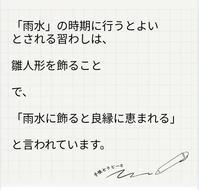 「雨水」の時期に行うとよい
とされる習わしは、
雛人形を飾ること
で、
「雨水に飾ると良縁に恵まれる」
と言われています。